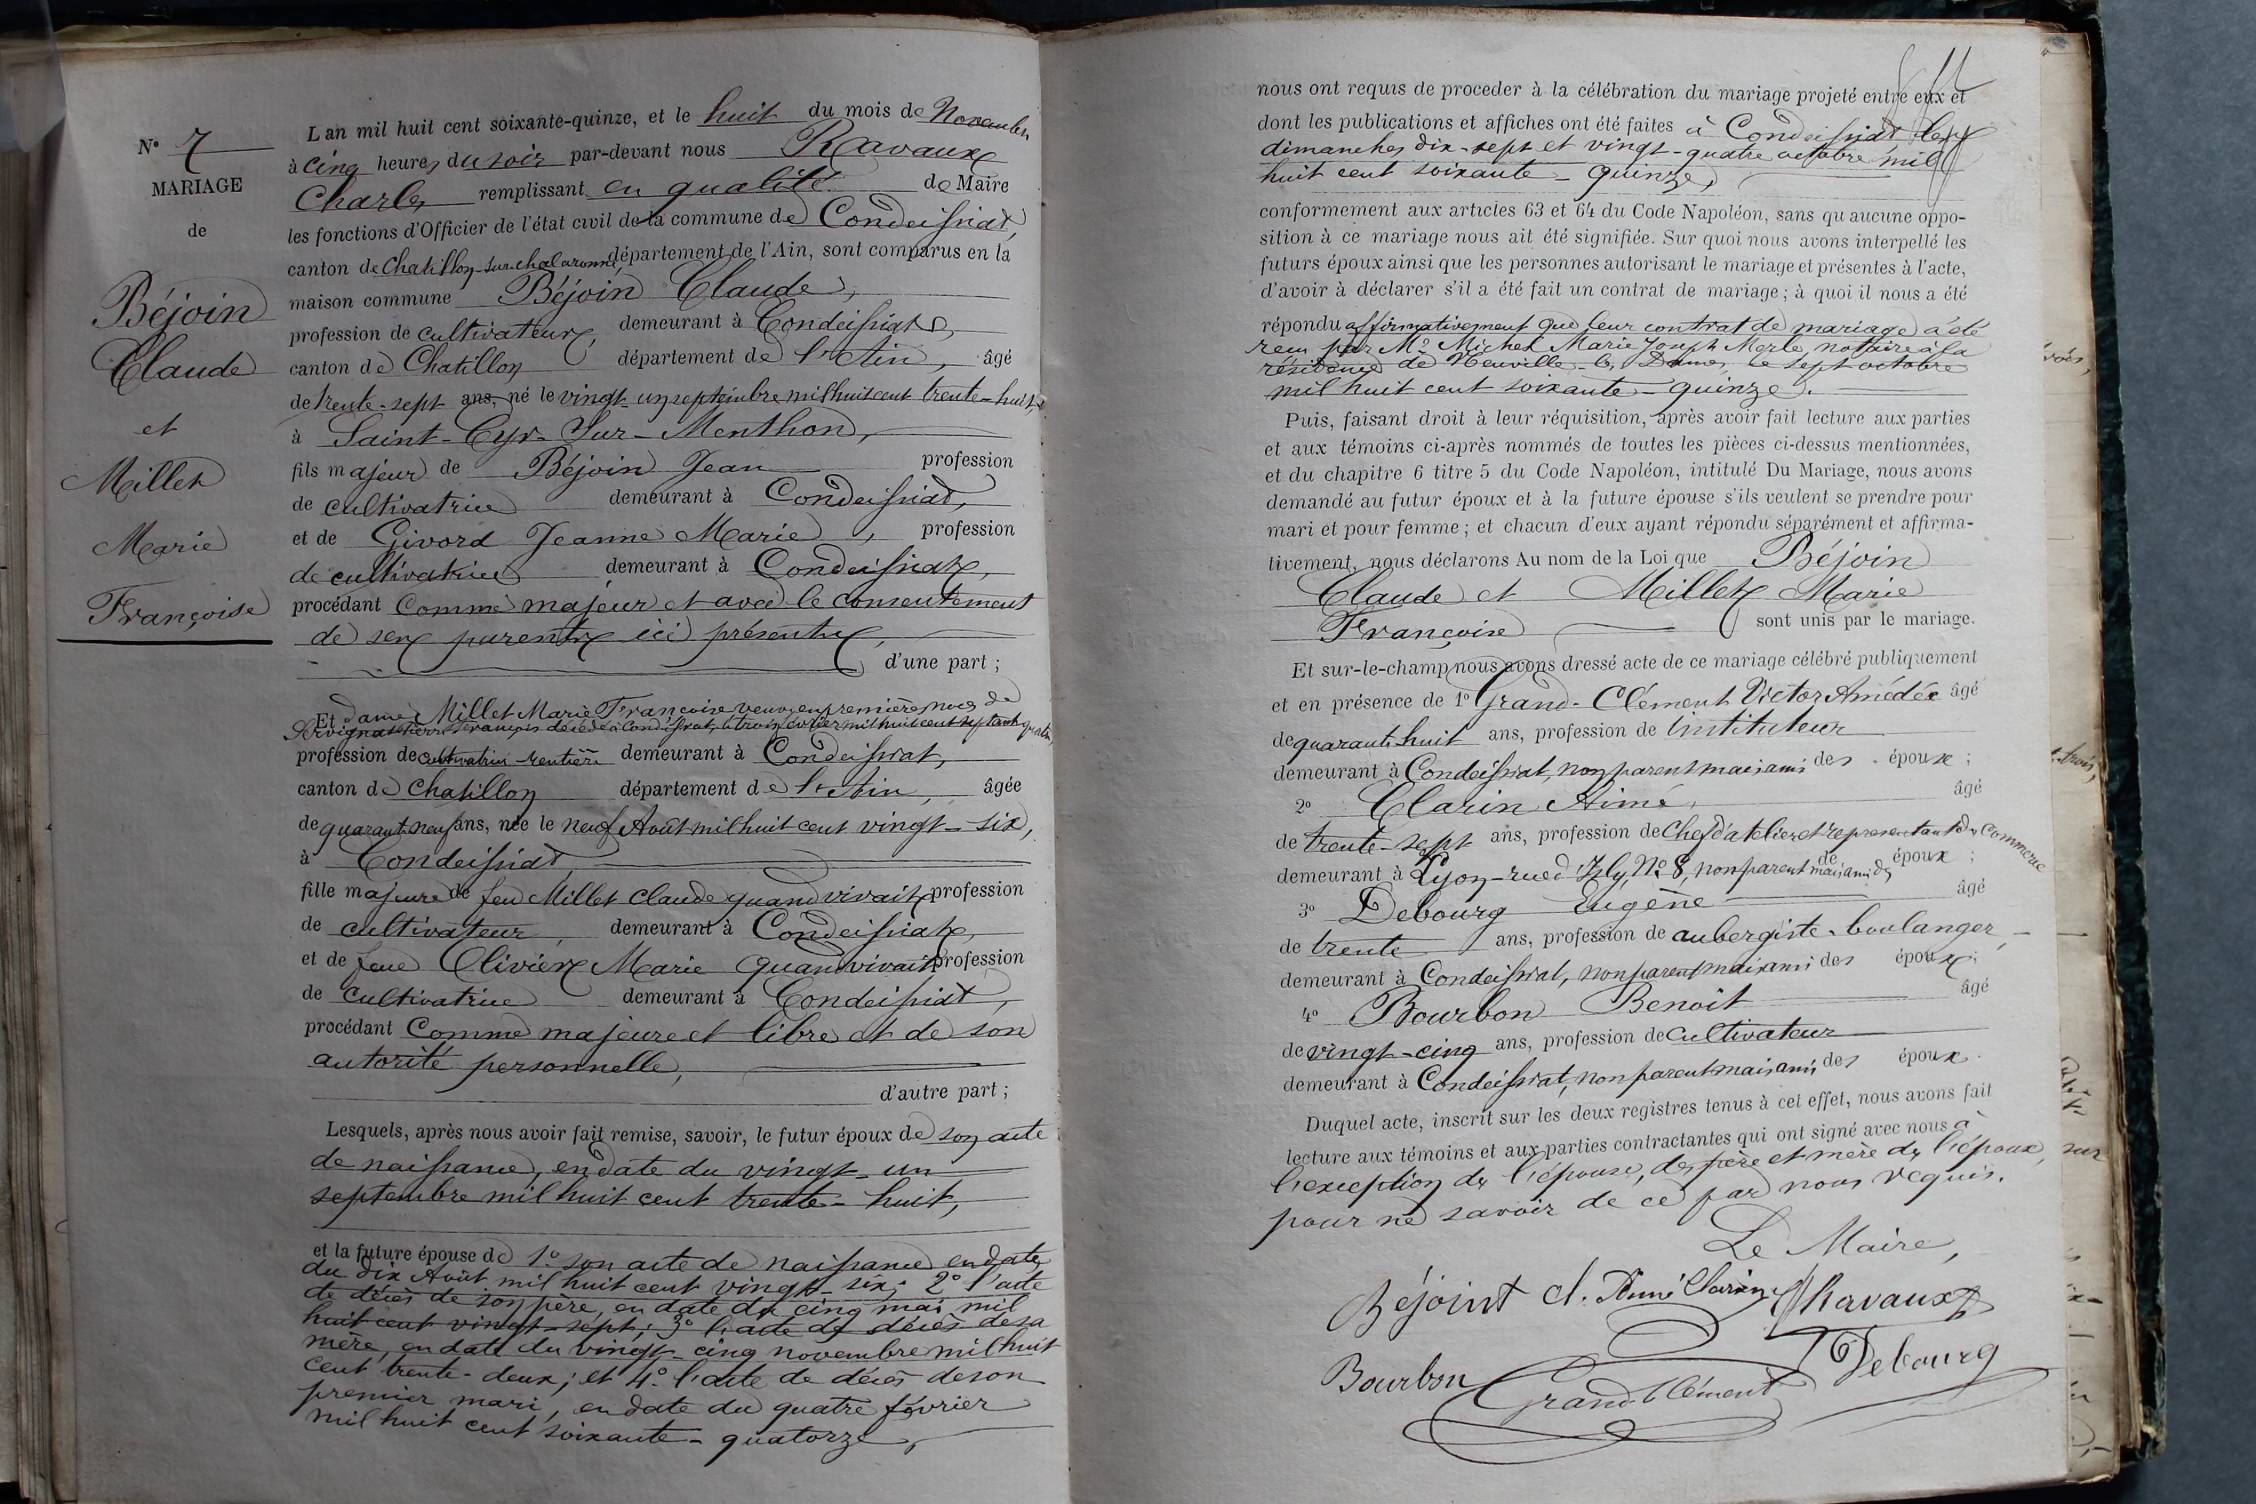 N° 7
MARIAGE
de
Béjoin
Claude
et
Millet
Marie
Françoise
L'an mil huit cent soixante-quinze, et le huit du mois de Novembre
à cinq heures du soir par-devant nous Ravaux
Charles remplissant en qualité de Maire
les fonctions d'Officier de l'état civil de la commune de Condeissiat,
canton de Chatillon-sur-chalaronne, département de l'Ain, sont comparus en la
maison commune Béjoin Claude,
profession de cultivateur, demeurant à Condeissiat,
canton de Chatillon département de l'Ain, âgé
de trente-sept ans, né le vingt-un septembre mil huit cent trente-huit,
à Saint-Cyr-Sur-Menthon,
fils majeur de Béjoin Jean profession
de cultivatrice demeurant à Condeissiat,
et de Givord Jeanne Marie, profession
de cultivatrice demeurant à Condeissiat,
procédant Comme majeur et avec le consentement
de ses parents ici présents,
d'une part ;
Et dame Millet Marie Françoise veuve en première noces de
Servignat Pierre François décédé à Condeissiat, le trois février mil huit cent septante quatre,
profession de cultivatrice-rentière demeurant à Condeissiat,
canton de Chatillon département de l'Ain, âgée
de quarante neuf ans, née le neuf Août mil huit cent vingt-six,
à Condeissiat
fille majeure de feu Millet Claude quand vivait profession
de cultivateur, demeurant à Condeissiat,
et de feue Olivier Marie quand vivait profession
de cultivatrice demeurant à Condeissiat,
procédant Comme majeure et libre et de son
autorité personnelle,
d'autre part ;
Lesquels, après nous avoir fait remise, savoir, le futur époux de son acte
de naissance, en date du vingt-un
septembre mil huit cent trente-huit,
et la future épouse de 1° son acte de naissance en date
du dix Août mil huit cent vingt-six; 2° l'acte
de décès de son père, en date du cinq mai mil
huit cent vingt-sept; 3° l'acte de décès de sa
mère, en date du vingt-cinq novembre mil huit
cent trente-deux; et 4° l'acte de décès de son
premier mari, en date du quatre février
mil huit cent soixante-quatorze,
nous ont requis de proceder à la célébration du mariage projeté entre eux et
dont les publications et affiches ont été faites à Condeissiat les
dimanches dix-sept et vingt-quatre octobre mil
huit cent soixante-quinze,
conformement aux articles 63 et 64 du Code Napoléon, sans qu'aucune oppo-
sition à ce mariage nous ait été signifiée. Sur quoi nous avons interpellé les
futurs époux ainsi que les personnes autorisant le mariage et présentes à l'acte,
d'avoir à déclarer s'il a été fait un contrat de mariage ; à quoi il nous a été
répondu affirmativement que leur contrat de mariage a été
reçu par Me Michel Marie Joseph Merle notaire à la
résidence de Neuville-les-Dames, le sept octobre
mil huit cent soixante-quinze.
Puis, faisant droit à leur réquisition, après avoir fait lecture aux parties
et aux témoins ci-après nommés de toutes les pièces ci-dessus mentionnées,
et du chapitre 6 titre 5 du Code Napoléon, intitulé Du Mariage, nous avons
demandé au futur époux et à la future épouse s'ils veulent se prendre pour
mari et pour femme ; et chacun d'eux ayant répondu séparément et affirma-
tivement, nous déclarons Au nom de la Loi que Béjoin
Claude et Millet Marie
Françoise sont unis par le mariage.
Et sur-le-champ nous avons dressé acte de ce mariage célébré publiquement
et en présence de 1° Grand-Clément Victor Amédée âgé
de quarante huit ans, profession de Instituteur
demeurant à Condeissiat, non parent mais ami des époux ;
2° Clarin Aimé, âgé
de trente-sept ans, profession de Chef d'atelier et représentant de commerce
demeurant à Lyon-rue d'Isly, N° 8, non parent mais ami des époux ;
3° Debourg Eugène âgé
de trente ans, profession de aubergiste-boulanger,
demeurant à Condeissiat, non parent mais ami des époux ;
4° Bourbon Benoît âgé
de vingt-cinq ans, profession de Cultivateur
demeurant à Condeissiat, non parent mais ami des époux.
Duquel acte, inscrit sur les deux registres tenus à cet effet, nous avons fait
lecture aux témoins et aux parties contractantes qui ont signé avec nous à
l'exception de l'épouse, des père et mère de l'époux,
pour ne savoir de ce par nous requis.
Le Maire,
Béjoint Cl. Aimé Clarin Ch Ravaux
Bourbon Grand Clément Debourg